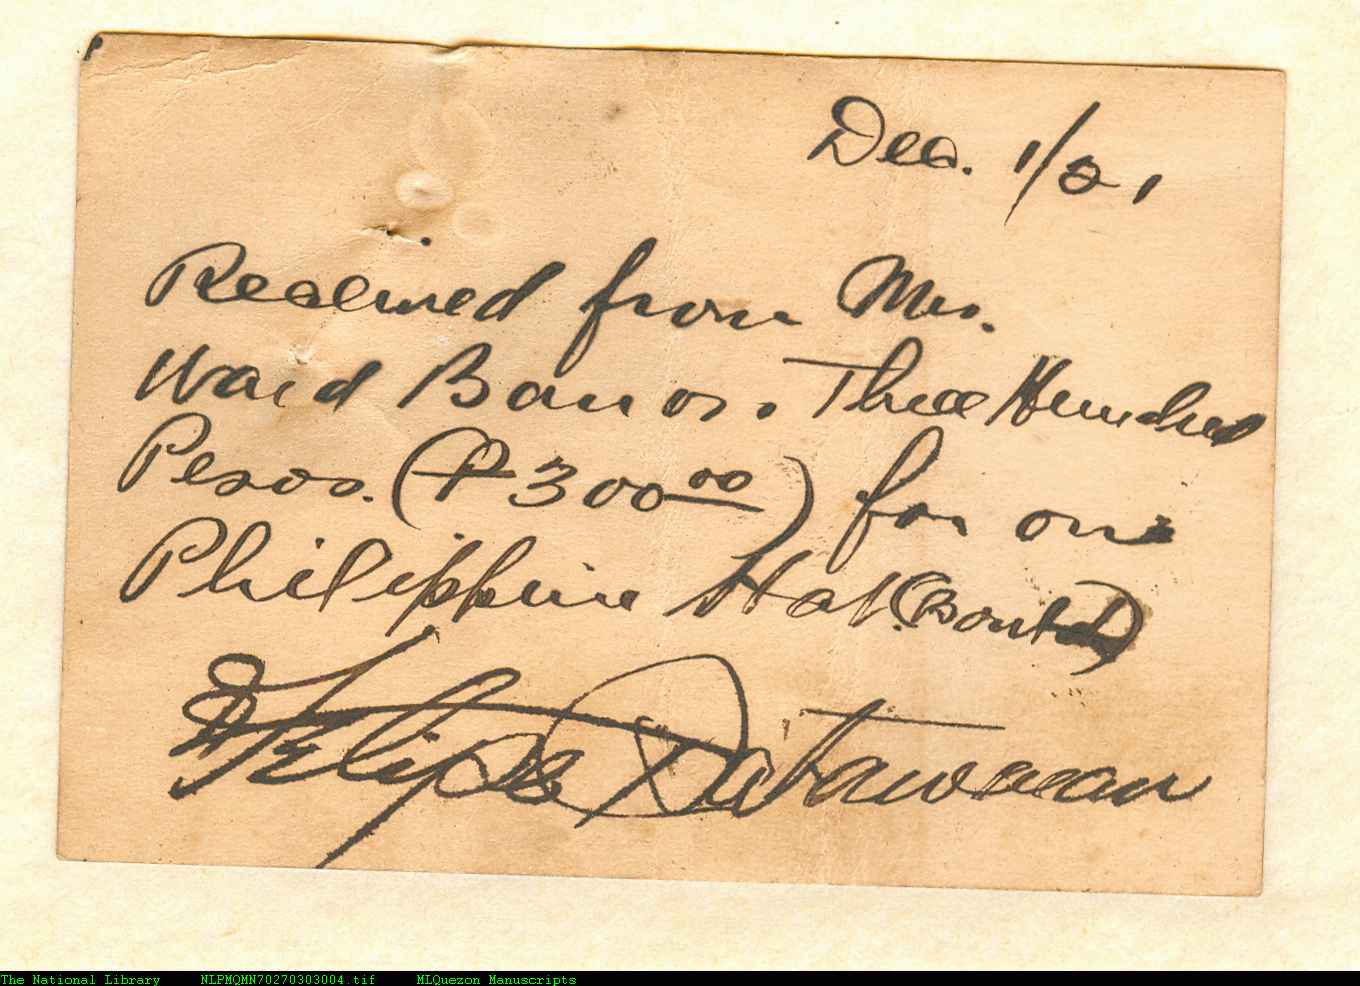 Dec. 1/21
Received from Mr.
Ward Banos. Three Hundred
Pesos. (₱300 00) for one
Philippine Hat. (
Felipe
The National Library NLPMQMN70270303004.tif MLQuezon Manuscripts